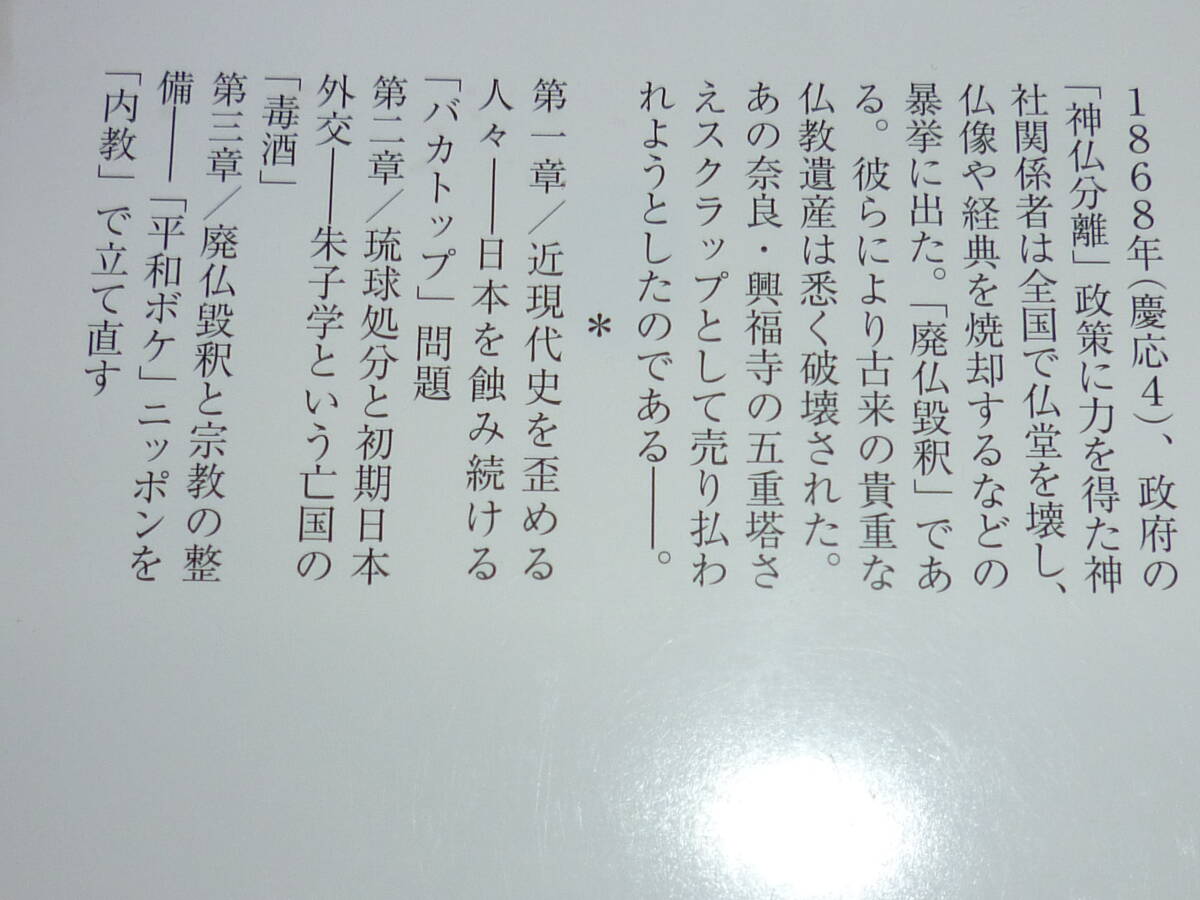 1868年(慶応4)、政府の
「神仏分離」政策に力を得た神
社関係者は全国で仏堂を壊し、
仏像や経典を焼却するなどの
暴挙に出た。「廃仏毀釈」であ
る。彼らにより古来の貴重な
仏教遺産は悉く破壊された。
あの奈良・興福寺の五重塔さ
えスクラップとして売り払わ
れようとしたのである――。
＊
第一章/近現代史を歪める
人々――日本を蝕み続ける
「バカトップ」問題
第二章/琉球処分と初期日本
外交――朱子学という亡国の
「毒酒」
第三章/廃仏毀釈と宗教の整
備――「平和ボケ」ニッポンを
「内教」で立て直す